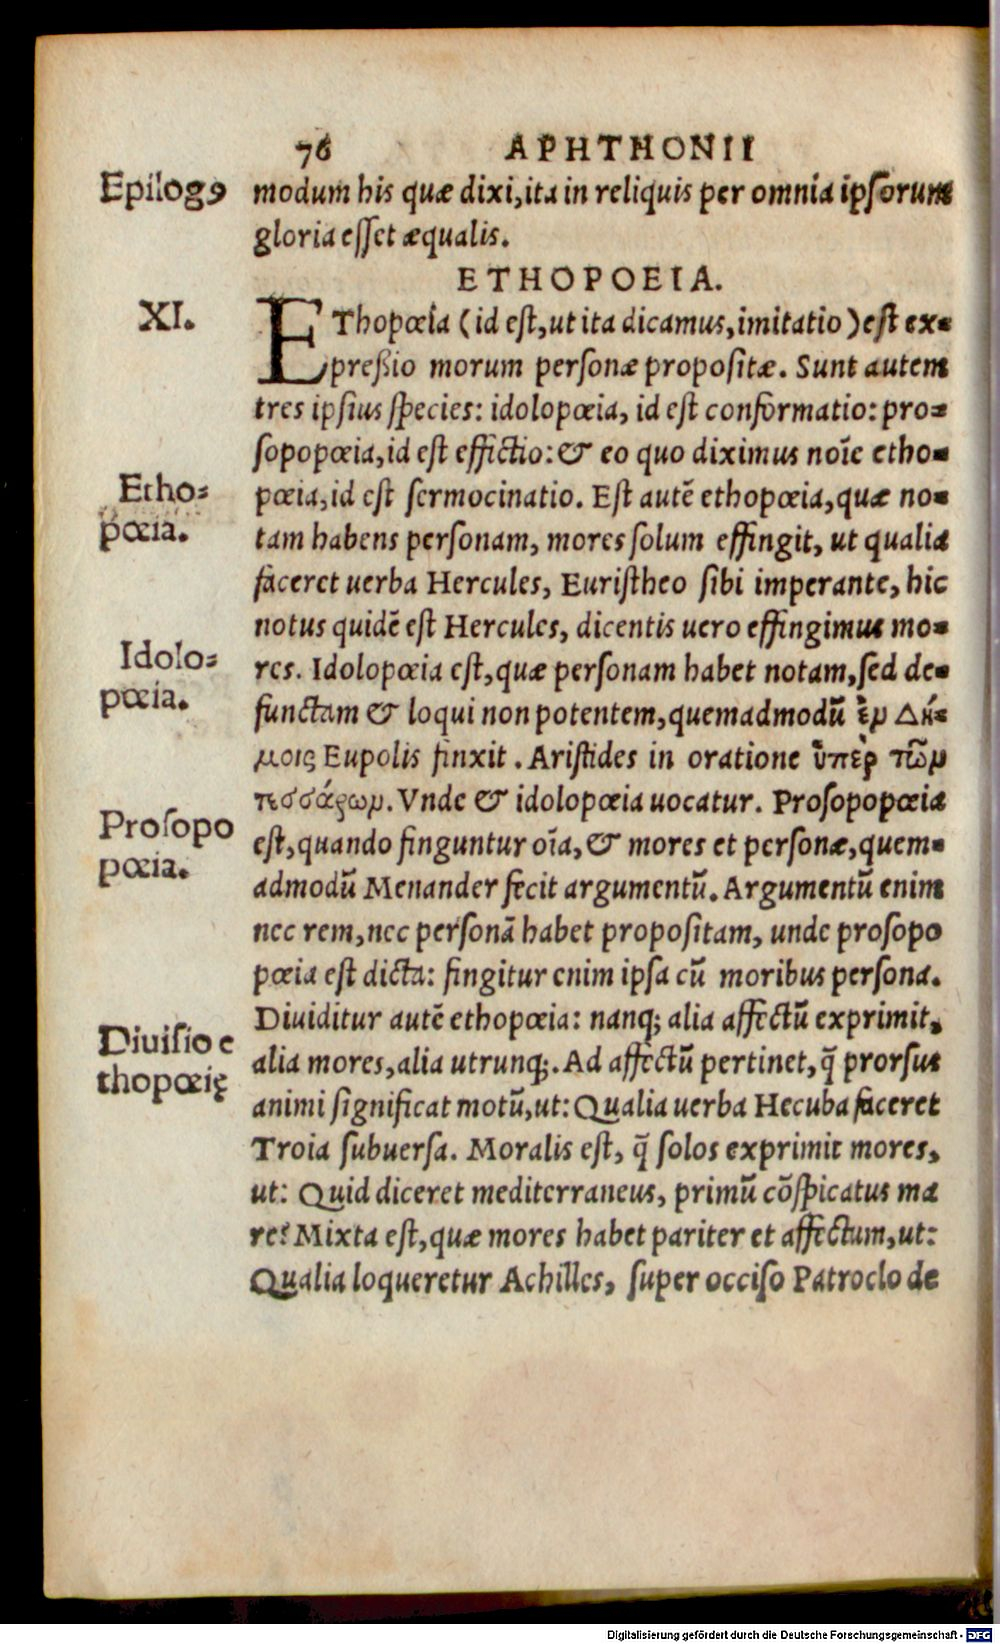 76 APHTHONII
Epilogꝰ
modum his quæ dixi, ita in reliquis per omnia ipsorum
gloria esset æqualis.
ETHOPOEIA.
XI.
EThopœia (id est, ut ita dicamus, imitatio) est ex-
preßio morum personæ propositæ. Sunt autem
tres ipsius species: idolopœia, id est conformatio: pro-
sopopœia, id est effictio: & eo quo diximus noīe etho-
Etho-
pœia.
pœia, id est sermocinatio. Est autē ethopœia, quæ no-
tam habens personam, mores solum effingit, ut qualia
faceret uerba Hercules, Euristheo sibi imperante, hic
notus quidē est Hercules, dicentis uero effingimus mo-
Idolo-
pœia.
res. Idolopœia est, quæ personam habet notam, sed de-
functam & loqui non potentem, quemadmodū ἐν Δή-
μοις Eupolis finxit. Aristides in oratione ὑπὲρ τῶν
τεσσάρων. Vnde & idolopœia uocatur. Prosopopœia
Prosopo
pœia.
est, quando finguntur oīa, & mores et personæ, quem-
admodū Menander fecit argumentū. Argumentū enim
nec rem, nec personā habet propositam, unde prosopo
pœia est dicta: fingitur enim ipsa cū moribus persona.
Diuisio e
thopœię
Diuiditur autē ethopœia: nanq; alia affectū exprimit,
alia mores, alia utrunq;. Ad affectū pertinet, q̄ prorsus
animi significat motū, ut: Qualia uerba Hecuba faceret
Troia subuersa. Moralis est, q̄ solos exprimit mores,
ut: Quid diceret mediterraneus, primū cōspicatus ma
re? Mixta est, quæ mores habet pariter et affectum, ut:
Qualia loqueretur Achilles, super occiso Patroclo de
Digitalisierung gefördert durch die Deutsche Forschungsgemeinschaft - DFG